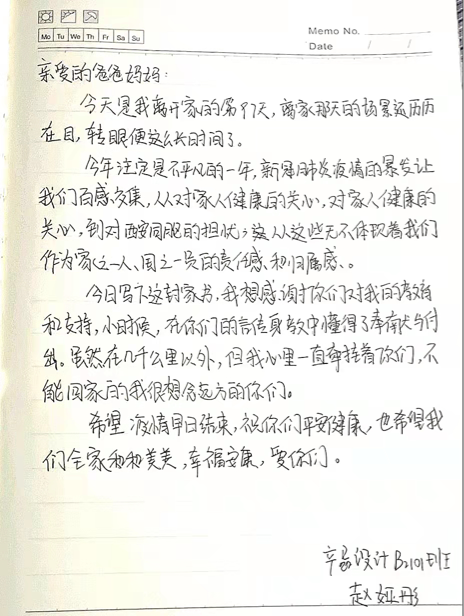 Memo No.
Mo Tu We Th Fr Sa Su
Date / /
亲爱的爸爸妈妈:
今天是我离开家的第97天,离家那天的场景还历历
在目,转眼便这么长时间了。
今年注定是不平凡的一年,新冠肺炎疫情的暴发让
我们百感交集,从对家人健康的关心,对家人健康的
关心,到对西安同胞的担忧,这从这些无不体现着我们
作为家之一人、国之一员的责任感、和归属感、。
今日写下这封家书,我想感谢你们对我的教育
和支持,小时候,在你们的言传身教中懂得了奉献与付
出。虽然在几千公里以外,但我心里一直牵挂着你们,不
能回家的我很想念远方的你们。
希望疫情早日结束,祝你们平安健康,也希望我
们全家和和美美,幸福安康,爱你们。
设计B2101班
赵娅彤